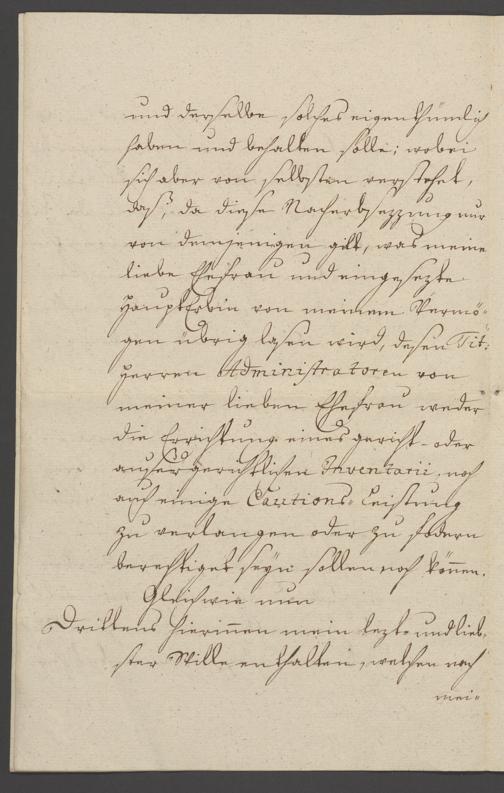 und derselbe solches eigenthümlich
haben und behalten solle; wobei
sich aber von selbsten verstehet,
daß, da diese Nacherbsezzung nur
von demjenigen gilt, was meine
liebe Ehefrau und eingesezte
Haupterbin von meinem Vermö-
gen übrig lasen wird, desen Tit:
Herren Administratoren von
meiner lieben Ehefrau weder
die Errichtung eines gericht- oder
ausergerichtlichen Inventarii, noch
auch einige Cautions-Leistung
zu verlangen oder zu fodern
berechtiget seyn sollen noch können.
Gleichwie nun
Drittens hierinnen mein lezt- und lieb-
ster Wille enthalten, welchen nach
mei-